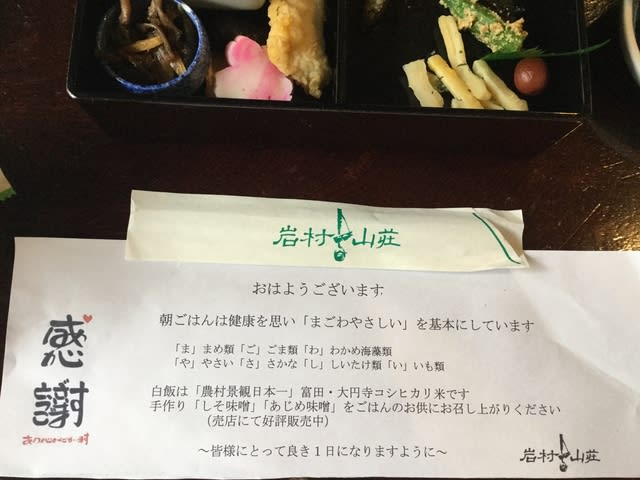 岩村山荘
おはようございます
朝ごはんは健康を思い「まごわやさしい」を基本にしています
「ま」まめ類「ご」ごま類「わ」わかめ海藻類
「や」やさい「さ」さかな「し」しいたけ類「い」いも類
白飯は「農村景観日本一」富田・大円寺コシヒカリ米です
手作り「しそ味噌」「あじめ味噌」をごはんのお供にお召し上がりください
（売店にて好評販売中）
～皆様にとって良き１日になりますように～
感謝
岩村山荘